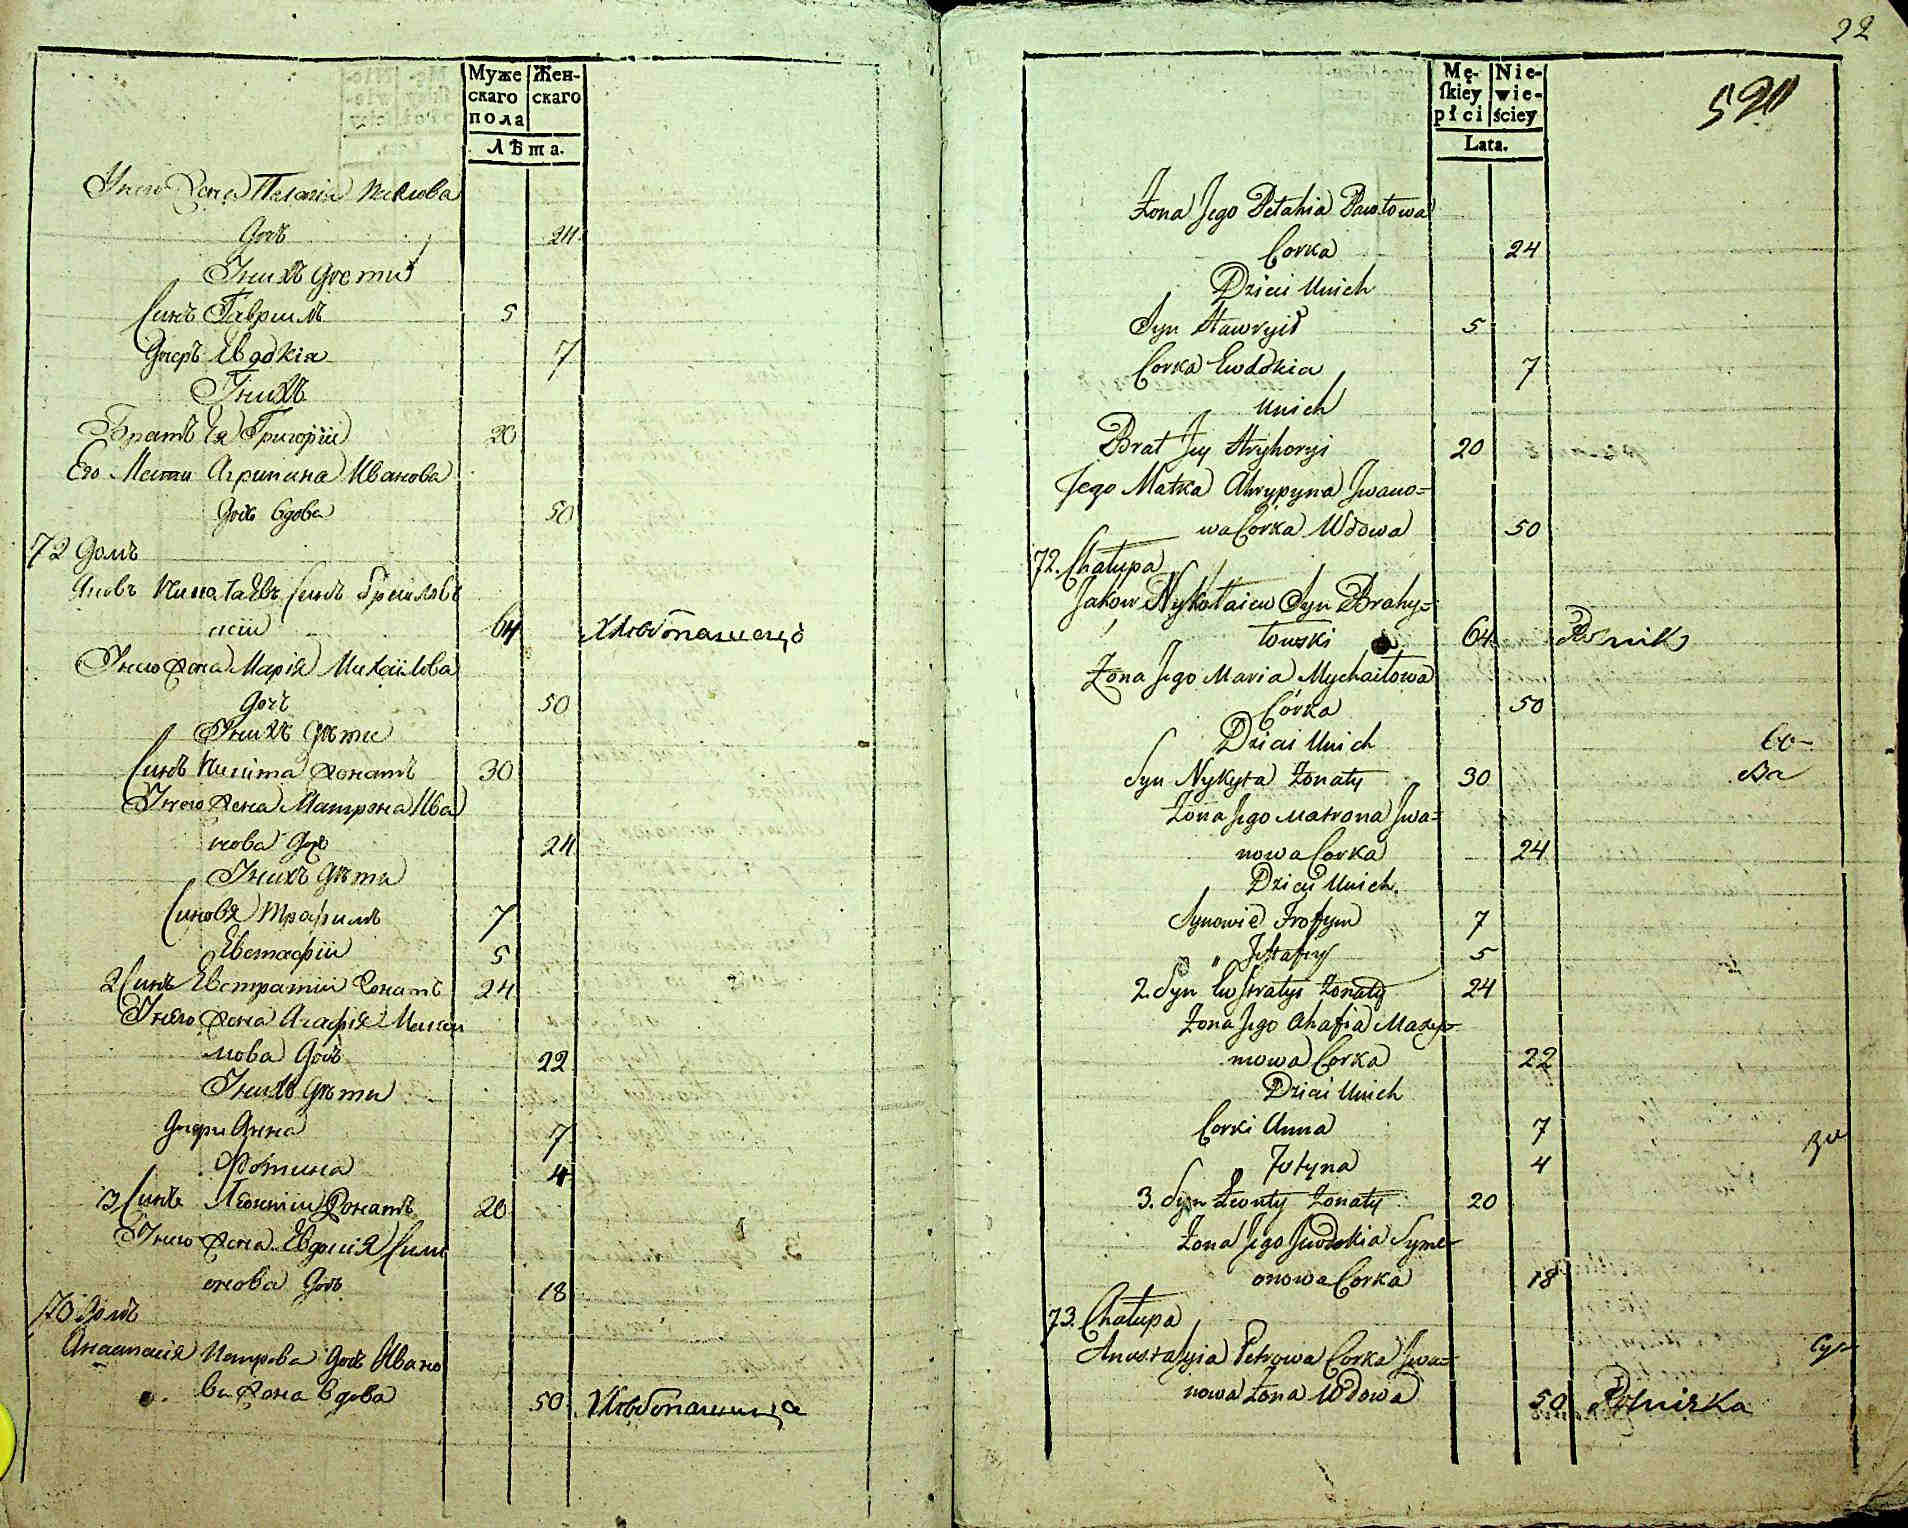 Муже Жен-
скаго скаго
пола
Лѣта.
У него жена Пелагия Павлова
дочь 24
У них дети
Синъ Гаврилъ 5
Дочеръ Евдокия 7
У нихъ
Братъ Ея Григорий 20
Его Мати Агрипина Иванова
дочь вдова 50
72 домъ
Яковъ Николаевъ синъ Браилов
ский 64 Хлебопашецъ
У него жена Мария Михайлова
дочь 50
У нихъ дѣти
Синъ Никита женатъ 30
У него жена Матрона Ива
нова дочь 24
У нихъ дѣти
Синовя Трофимъ 7
Евстафий 5
2 Синъ Евстратий женатъ 24
У него жена Агафия Макси
мова дочь 22
У нихъ дѣти
Дочери Анна 7
Фотина 4
3 Синъ Леонтий женатъ 20
У него жена Евдокия Сим
онова дочь 18
73 домъ
Анастасия Петрова дочь Ивано
ва жена вдова 50 Хлебопашица
22
Mę- Nie-
skiey wie-
płci ściey
Lata.
Żona Jego Pełahia Pawłowa
Corka 24
Dzieci Unich
Syn Hawryił 5
Corka Ewdokia 7
Unich
Brat Jey Hryhoryi 20
Jego Matka Ahrypyna Jwano=
wa Córka Wdowa 50
72. Chałupa
Jakow Nykołaiew Syn Brahy=
łowski 64 Rolnik
Żona Jego Maria Mychaiłowa
Córka 50
Dzieci Unich
Syn Nykyta Żonaty 30
Żona Jego Matrona Jwa=
nowa Corka 24
Dzieci Unich.
Synowie Trofym 7
" Jstafiy 5
2. Syn Ewstratyi Żonaty 24
Żona Jego Ahafia Maxy=
mowa Corka 22
Dzieci Unich
Corki Anna 7
Fotyna 4
3. Syn Łeonty Żonaty 20
Żona Jego Jewdokia Syme=
onowa Corka 18
73. Chałupa
Anastazyia Petrowa Corka Jwa=
nowa Żona Wdowa 50 Rolniczka